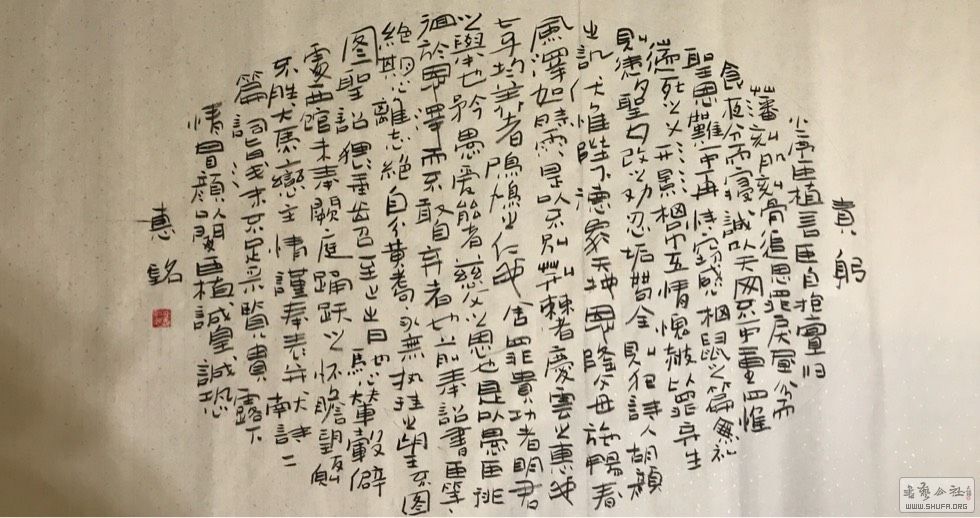 責躬
小序臣植言臣自抱釁归
藩刻肌刻骨追思罪戾昼分而
食夜分而寝诚以天网不可重罹
聖恩難可再恃窃感相鼠之篇無礼
遄死之义形影相吊五情愧赧以罪弃生
則違聖夕改之劝忍垢苟全則犯詩人胡顏
之訊伏惟陛下德象天地恩隆父母施暢春
風澤如時雨是以不別荆棘者慶雲之惠也
七子均養者鳲鳩之仁也舍罪責功者明君
之舉也矜愚爱能者慈父之恩也是以愚臣徘
徊於恩澤而不敢自弃者也前奉詔書臣等
絶朝心離志絶自分黄耇永無执珪之望不图
图聖詔猥垂齿召至止之日馳心輦轂僻
處西館未奉闕庭踊跃之怀瞻望反側
不胜犬馬戀主情謹奉表并献詩二
篇詞旨浅末不足采覽貴露下
情冒顏以聞臣植诚皇诚恐
惠銘
書藝公社
WWW.SHUFA.ORG